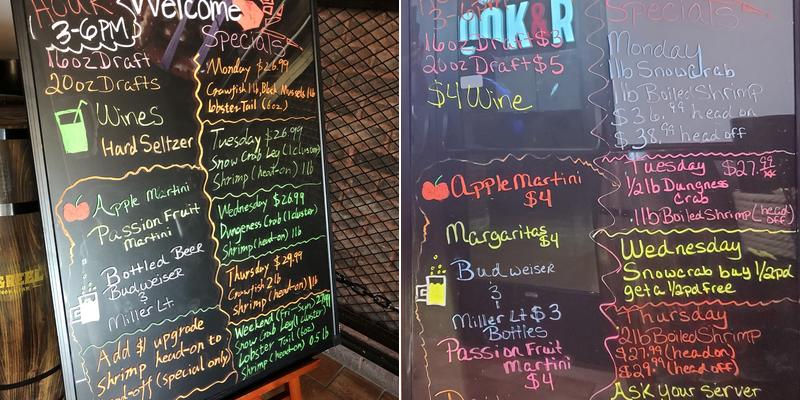 Hour
Welcome
3-6PM
16oz Draft
20oz Drafts
Wines
Hard Seltzer
Apple Martini
Passion Fruit
Martini
Bottled Beer
Budweiser
&
Miller Lt.
Add $1 upgrade
Shrimp head-on to
head-off (special only)
Specials
Monday $26.99
Crawfish 1lb, Black Mussels 1lb
Lobster Tail (6oz)
Tuesday $26.99
Snow Crab Leg (1 cluster)
Shrimp (head-on) 1lb
Wednesday $26.99
Dungeness Crab (1 cluster)
Shrimp (head-on) 1lb
Thursday $29.99
Crawfish 2lb
Shrimp (head-on) 1lb
Weekend (Fri-Sun)
Snow Crab Leg (1 cluster)
Lobster Tail (6oz)
Shrimp (head-on) 0.5 lb
3-6PM
16oz Draft $3
20oz Draft $5
$4 Wine
Apple Martini
$4
Margaritas
$4
Budweiser
&
Miller Lt $3
Bottles
Passion Fruit
Martini
$4
Specials
Monday
1lb Snowcrab
1lb Boiled Shrimp
$36.99 head on
$38.99 head off
Tuesday $27.99
1/2lb Dungness
Crab
1lb Boiled Shrimp (head off)
Wednesday
Snowcrab buy 1/2pd
get a 1/2pd free
Thursday
2lb Boiled Shrimp
$27.99 (head on)
$29.99 (head off)
Ask your server